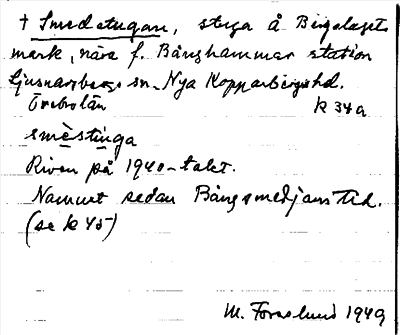 † Smedstugan, stuga å Bergslagets
mark, nära f. Bånghammar station
Ljusnarsbergs sn. Nya Kopparbergs hd.
Örebro län k 34a
smèstùga
Riven på 1940-talet.
Namnet sedan Bångsmedjans tid.
(se k 45)
M. Forslund 1949